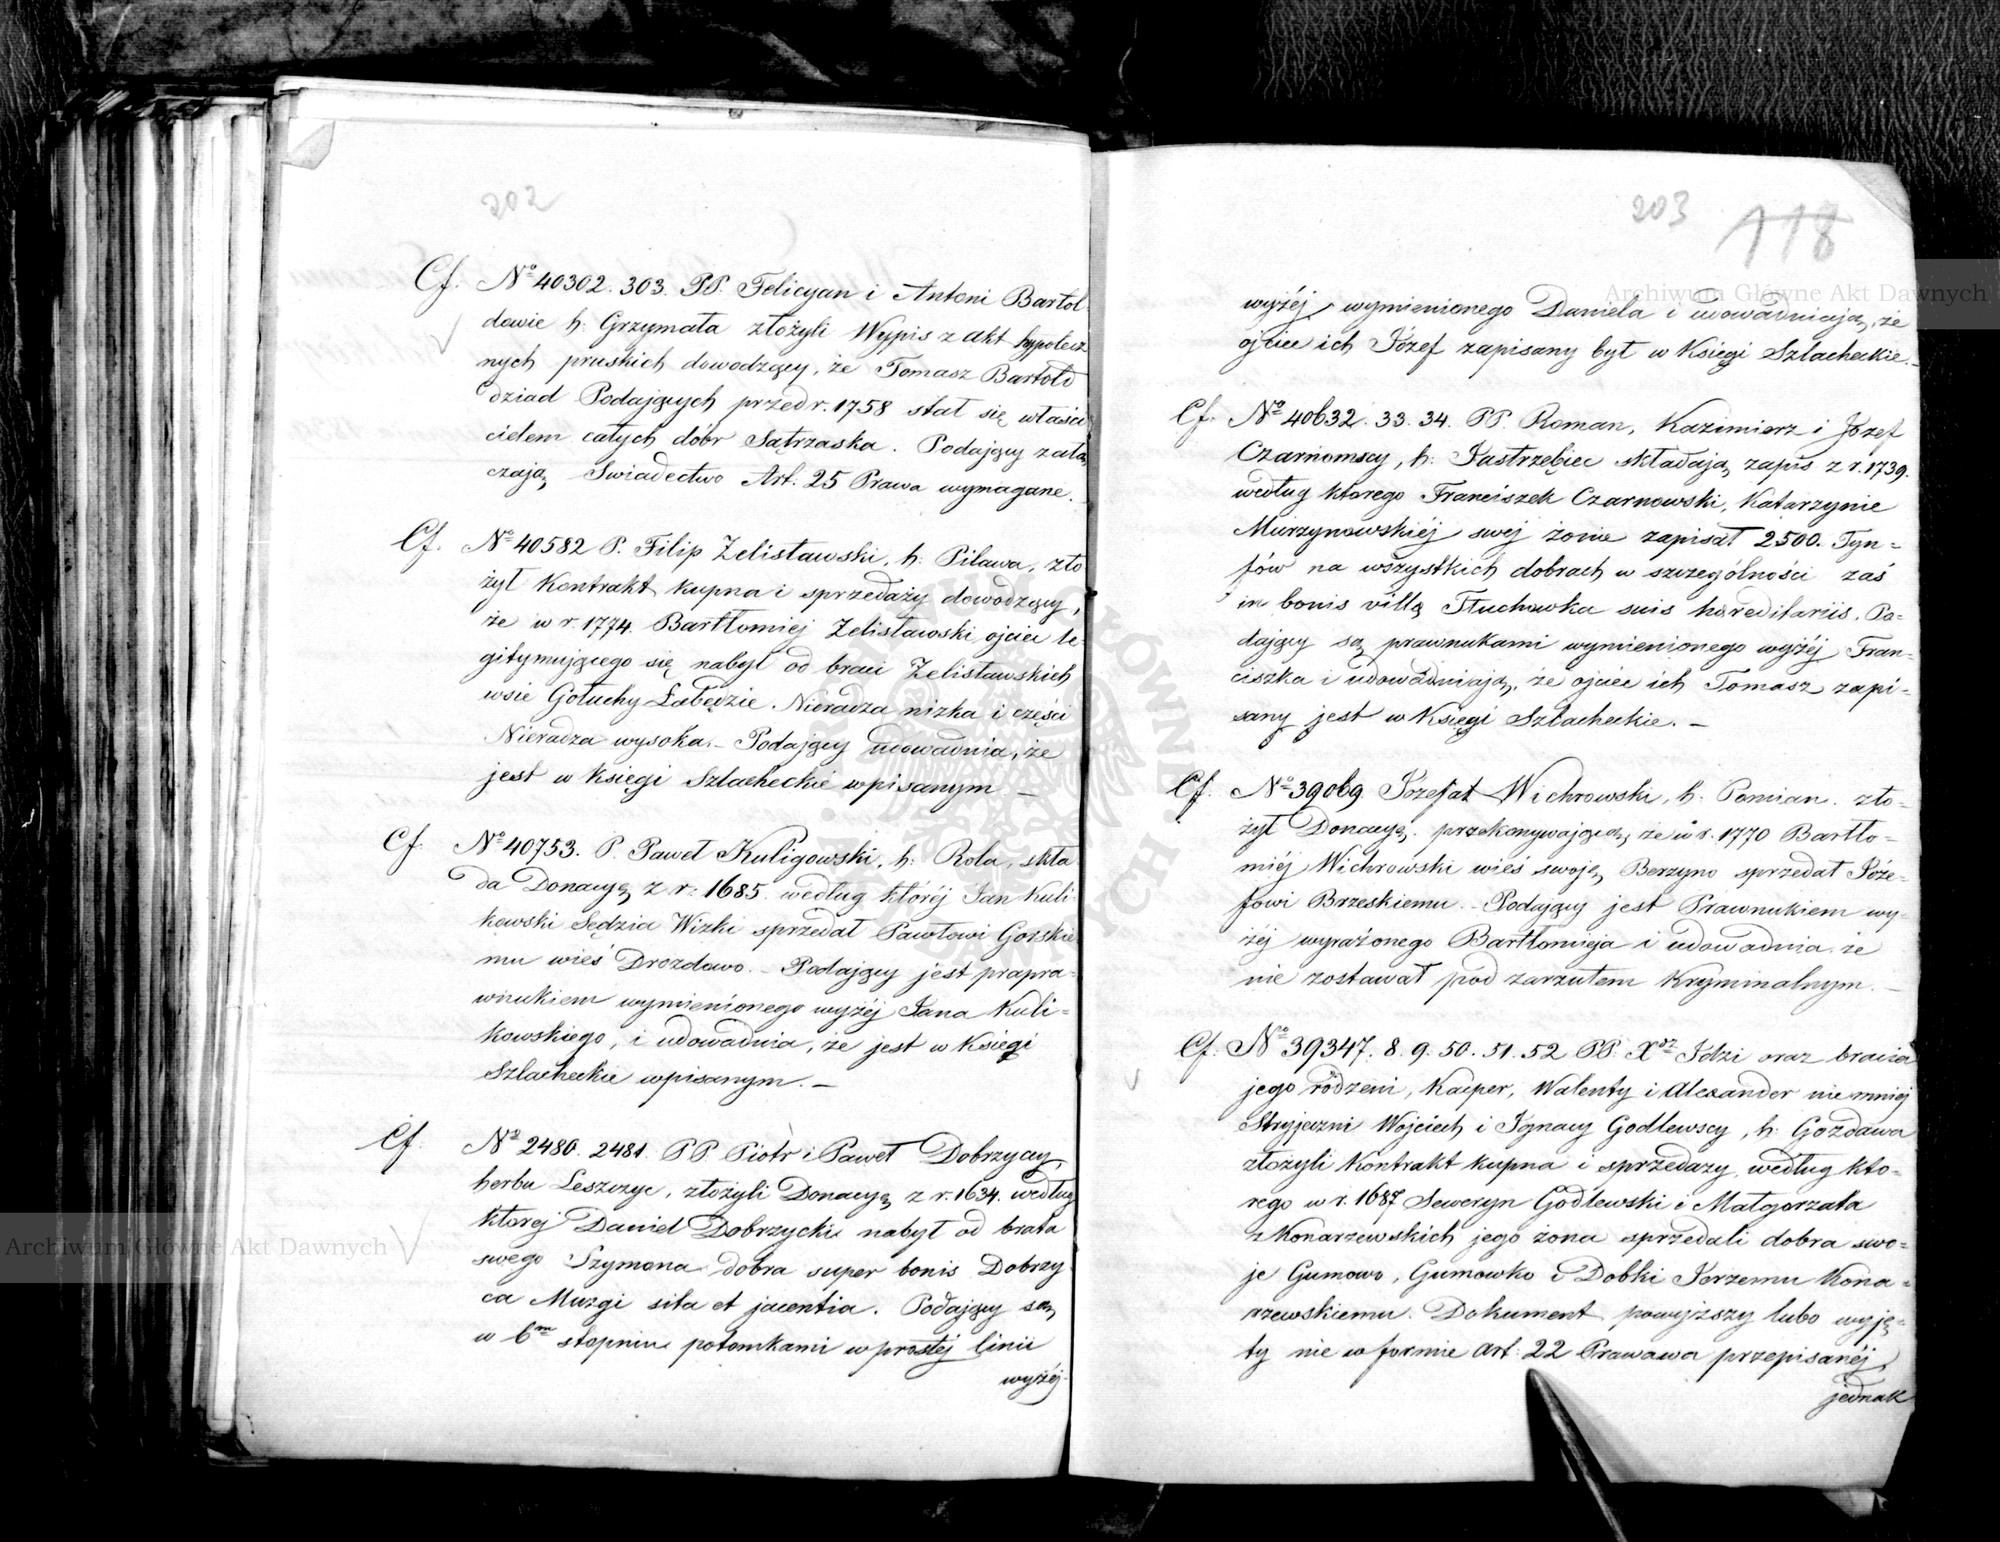 202
Cf. No 40302. 303. PP. Felicyan i Antoni Bartol-
dowie h: Grzymała złożyli Wypis z akt hypotecz
nych pruskich dowodzący, że Tomasz Bartold
dziad Podających przed r. 1758 stał się właści
cielem całych dóbr Satrzaska. Podający załą
czają Swiadectwo Art. 25 Prawa wymagane.
Cf. No 40582 P. Filip Zelisławski, h: Pilawa, zło
żył Kontrakt kupna i sprzedaży dowodzący,
że w r. 1774. Bartłomiej Zelisławski ojciec le
gitymującego się nabył od braci Zelisławskich
wsie Gołuchy Łabędzie. Nieradza nizka i części
Nieradza wysoka. – Podający udowadnia, że
jest w Księgi Szlacheckie wpisanym –
Cf. No 40753. P. Paweł Kuligowski, h: Rola, skła
da Donacyą z r: 1685. według któréj Jan Kuli
kowski Sędzia Wizki sprzedał Pawłowi Gorskie
mu wieś Drozdowo. – Podający jest prapra-
wnukiem wymienionego wyżéj Jana Kuli-
kowskiego, i udowadnia, że jest w Księgi
Szlacheckie wpisanym. –
Cf. No 2480. 2481. PP Piotr i Paweł Dobrzyccy,
herbu Leszczyc, złożyli Donacyą z r. 1634. według
ktorej Daniel Dobrzycki nabył od brata
swego Szymona dobra super bonis Dobrzy
ca Muzgi sita et jacentia. Podający są
w 6m stopniu potomkami w prostéj linii
wyżéj
203 118
wyżéj wymienionego Daniela i udowadniają, że
ojciec ich Józef zapisany był w Księgi Szlacheckie. –
Cf. No 40632. 33. 34. PP. Roman, Kazimierz i Józef
Czarnomscy, h: Jastrzębiec składają zapis z r. 1739.
według ktorego Franciszek Czarnowski, Katarzynie
Murzynowskiéj swej żonie zapisał 2500. Tyn-
fów na wszystkich dobrach w szczególności zaś
in bonis villa Tłuchowka suis haereditariis. Po-
dający są prawnukami wymienionego wyżéj Fran-
ciszka i udowadniają, że ojciec ich Tomasz zapi-
sany jest w Księgi Szlacheckie. –
Cf. No 39069. Józefat Wichrowski, h: Pomian. zło-
żył Donacyą. przekonywającą, że w r. 1770 Bartło-
miéj Wichrowski wieś swoję Berzyno sprzedał Józe-
fowi Brzeskiemu. – Podający jest Prawnukiem wy-
żéj wyrażonego Bartłomieja i udowadnia że
nie zostawał pod zarzutem Kryminalnym. –
Cf. No 39347. 8. 9. 50. 51. 52 PP. Xdz Idzi oraz bracia
jego rodzeni, Kacper, Walenty i Alexander nie mniej
Stryjeczni Wojciech i Ignacy Godlewscy, h: Gozdawa
złożyli Kontrakt kupna i sprzedaży według kto-
rego w r. 1687 Seweryn Godlewski i Małgorzata
z Konarzewskich jego żona sprzedali dobra swo-
je Gumowo, Gumowko i Dobki Jerzemu Kona-
rzewskiemu. Dokument powyższy lubo wyję-
ty nie w formie Art: 22 Prawawa przepisanéj,
jednak
Archiwum Główne Akt Dawnych
Archiwum Główne Akt Dawnych